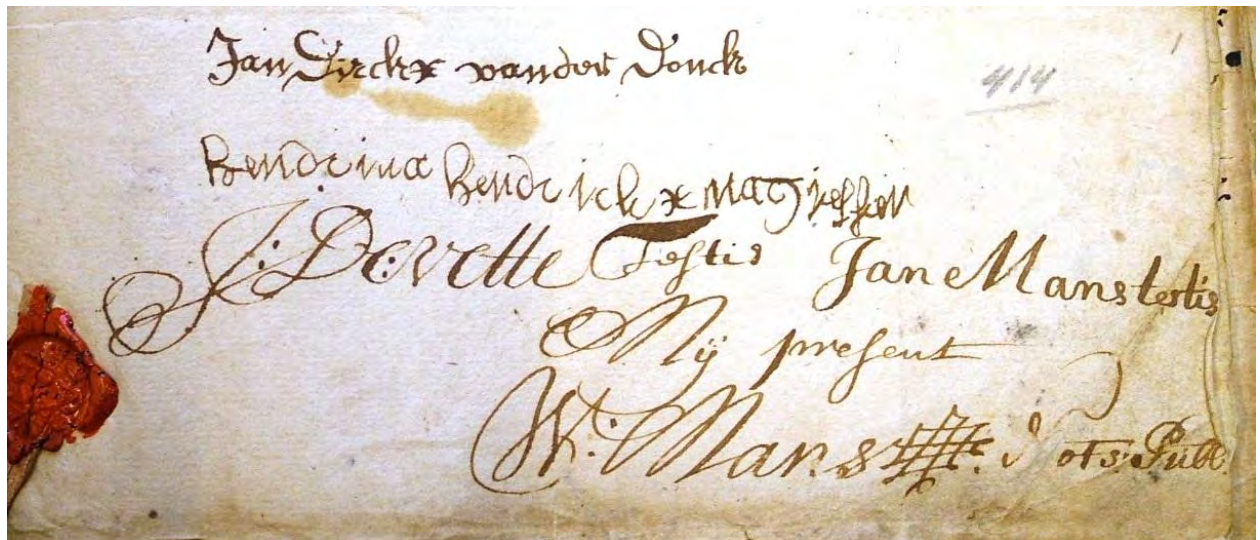 Jan Dirckx vander Donck
414
Hendrina Hendrickx
J: De:vette Testis Jan Mans testis
Mij present
W: Mans Nots: Publ